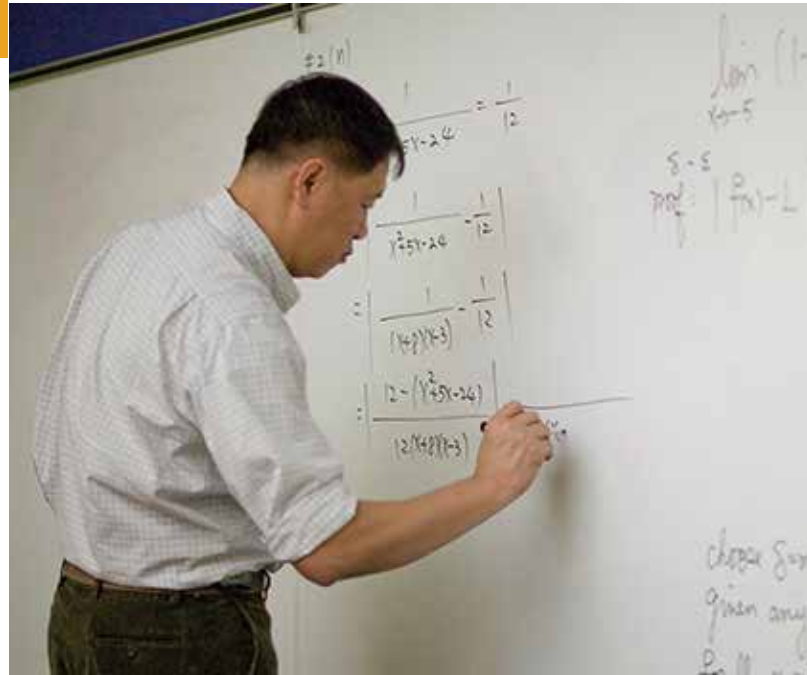 #2(n)
1
5x-24 = 1/12
| 1/(x²+5x-24) - 1/12 |
= | 1/((x+8)(x-3)) - 1/12 |
= | (12-(x²+5x-24))/(12(x+8)(x-3)) |
lim (1-
x→-5
δ-ε
proof: | f(x)-L
choose δ=
given any